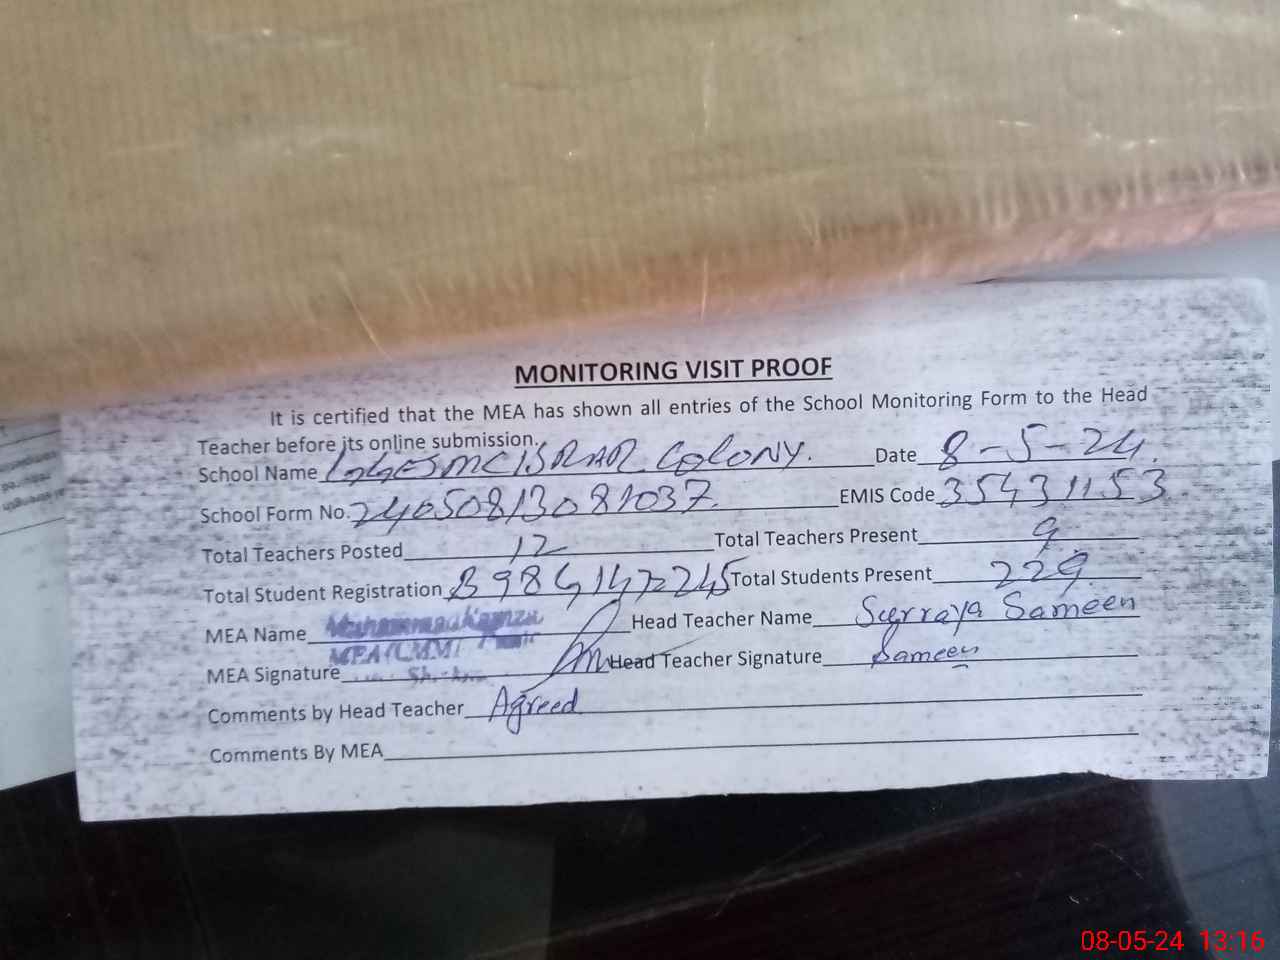 MONITORING VISIT PROOF
It is certified that the MEA has shown all entries of the School Monitoring Form to the Head
Teacher before its online submission.
School Name GGES MC ISRAR COLONY. Date 8-5-24.
School Form No. 24050813081037. EMIS Code 35431153
Total Teachers Posted 12 Total Teachers Present 9
Total Student Registration Total Students Present 229
MEA Name Muhammad Head Teacher Name Surraya Sameen
MEA Signature Head Teacher Signature Sameen
Comments by Head Teacher Agreed
Comments By MEA
08-05-24 13:16